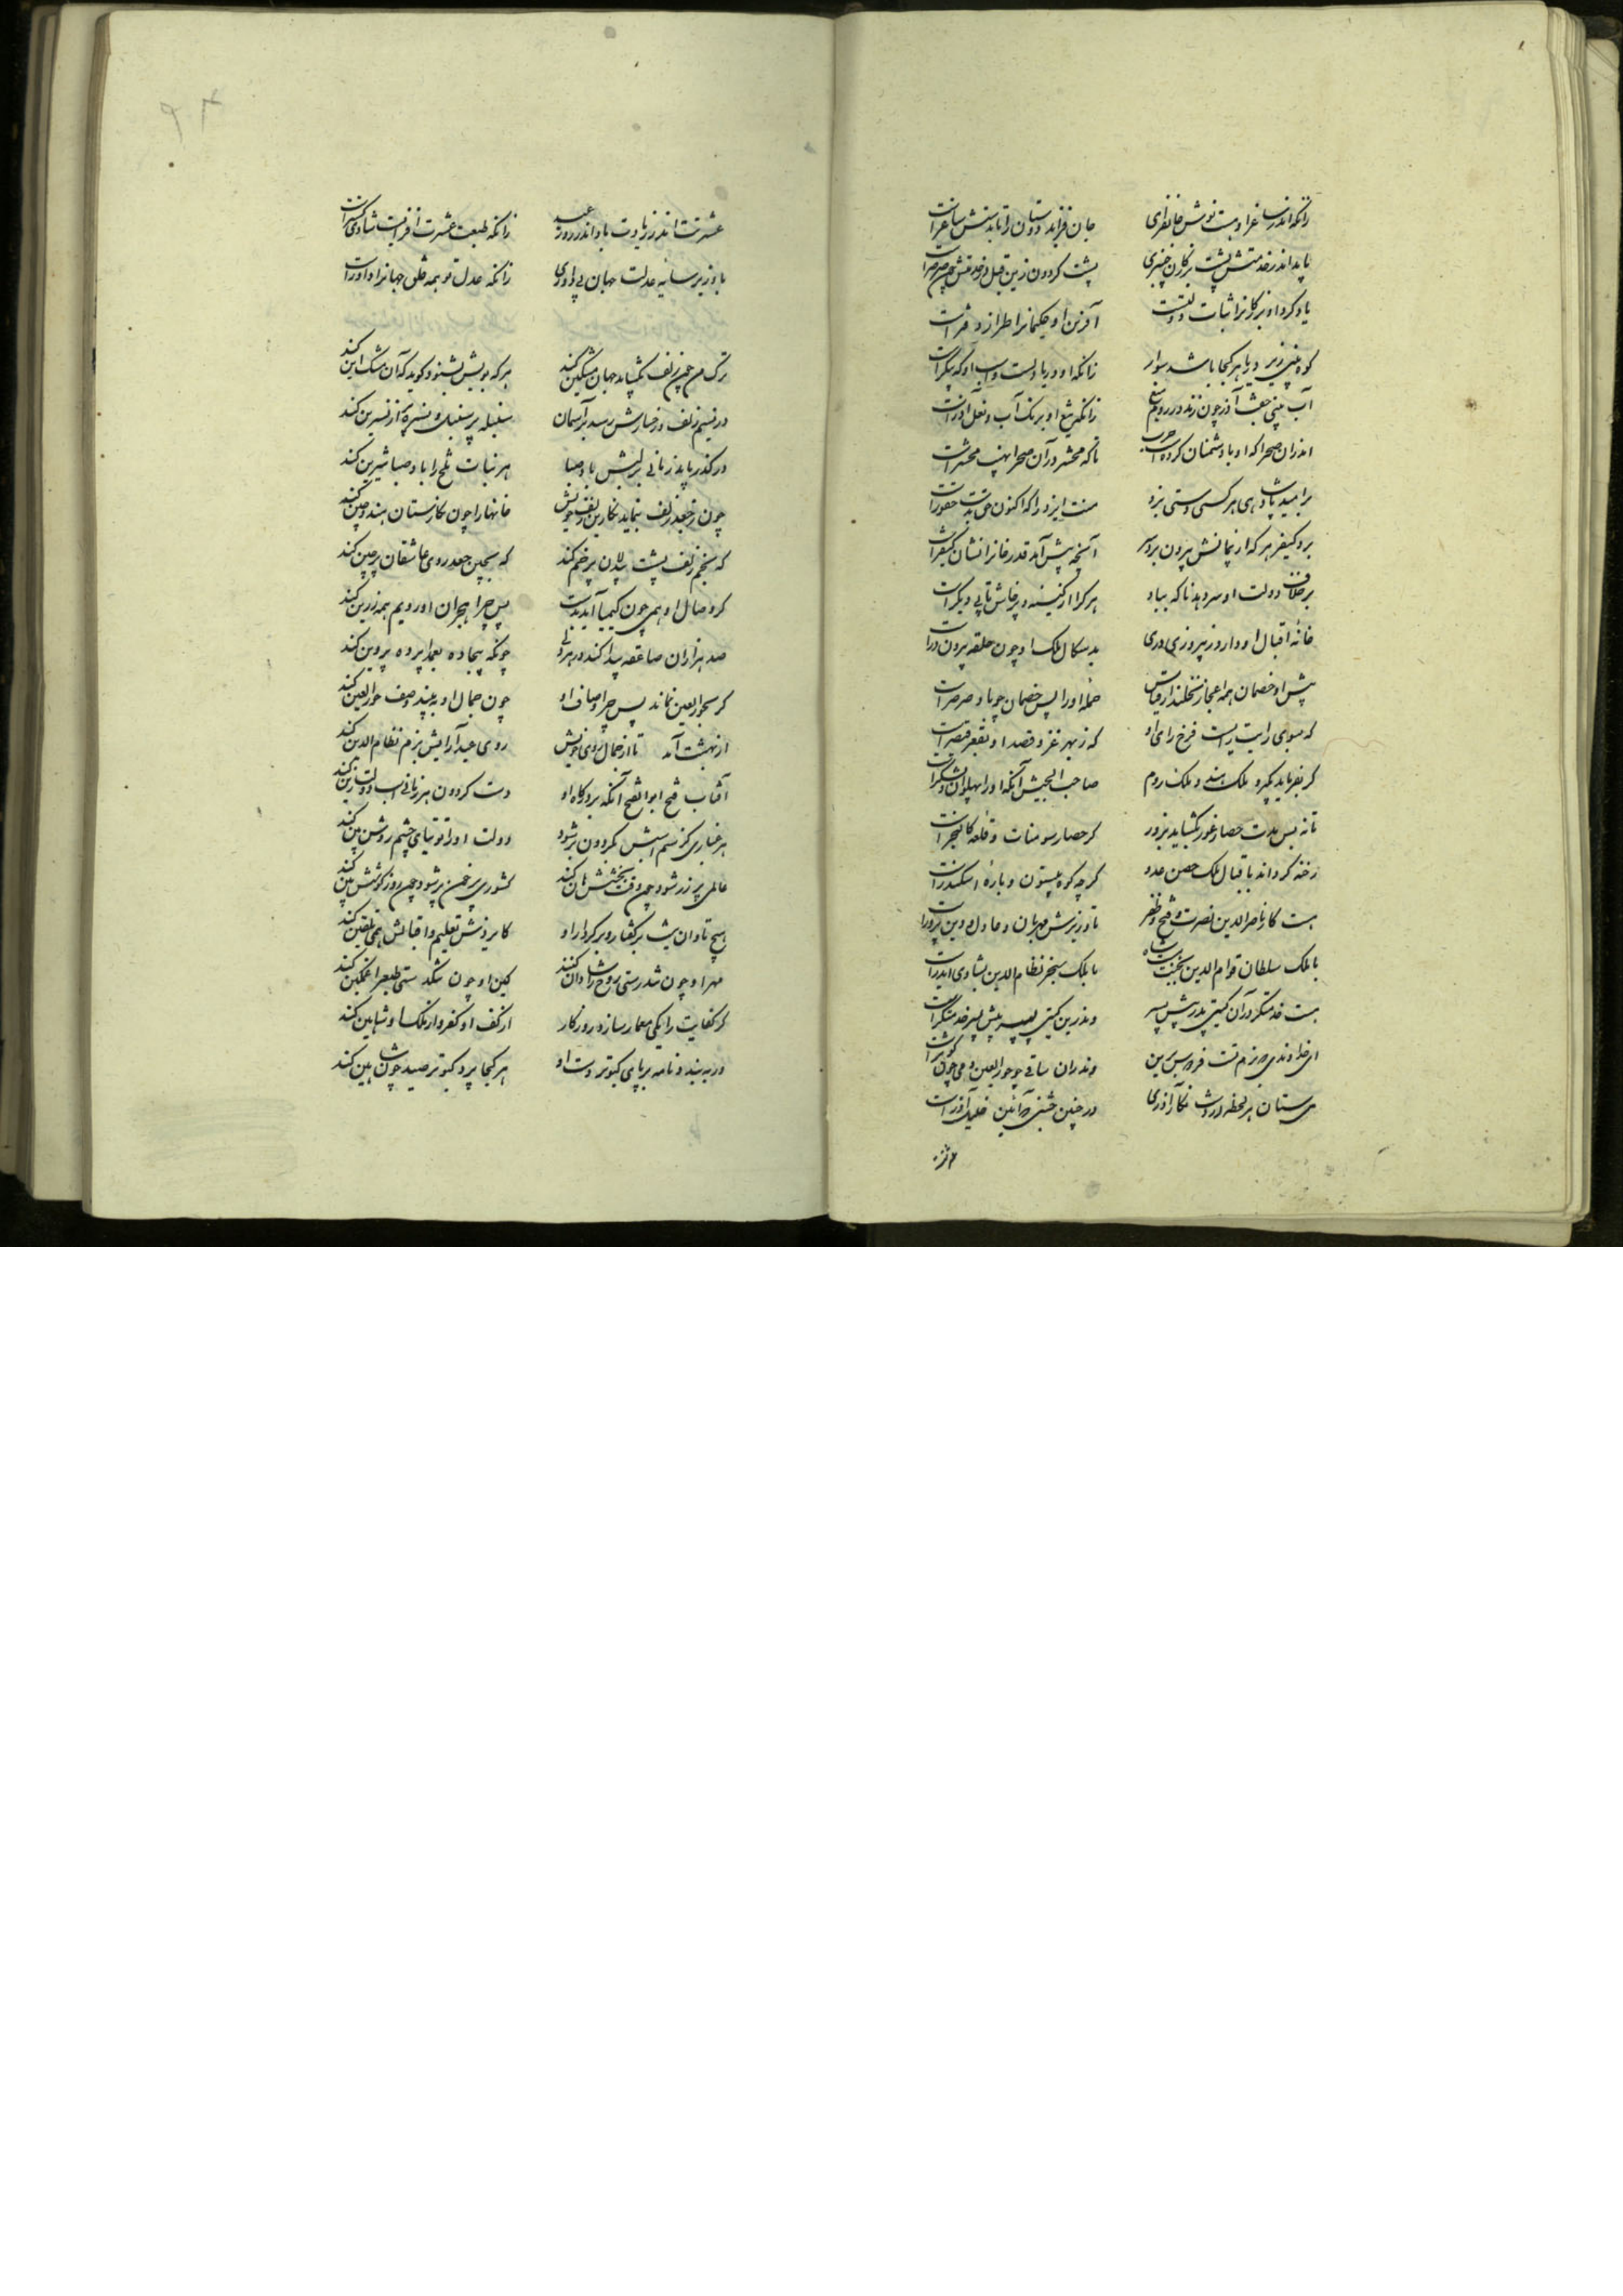 زانکه اندر ساغر او هست نوش جانفزای جان فزاید دوستان را تا بدستش ساغرست
باید اندر خدمتش پشت بزرگان چنبری پشت گردون زین قبل در خدمتش چون چنبرست
یاد کرد او بزرگانرا ثبات دولتست آفرین او حکیمانرا طراز دفترست
کوه بینی زیر دریا هر کجا باشد سوار زانکه او دریا دلست و اسب او که پیکرست
آب بینی جفت آذر چون زند در رزم تیغ زانکه تیغ او برنگ آب و فعل آذرست
اندران صحرا که او با دشمنان کردست حرب تا که محشر در آن صحرا نهیب محشرست
بر امید پادشاهی هر کسی دستی بزد منت ایزد را که اکنون حق بدست حقورست
برد کیفر هر که از پیمانش بیرون برد سر آنچه پیش آمد قدر خانرا نشان کیفرست
بر خلاف دولت او سر دهد ناگه بباد هر کرا از کینه و پرخاش تابی در سرست
خانهٔ اقبال او دارد ز پیروزی دری بدسگال ملک او چون حلقه بیرون درست
پیش او خصمان همه اعجاز نخلند از قیاس حملهٔ او را پس خصمان چو باد صرصرست
که سوی رای رایست فرخ رای او که ز بهر غزو قصد او بقصر قیصرست
گر بفرماید بگیرد ملک هند و ملک روم صاحب الجیش آنکه او را پهلوان لشکرست
تا نه بس مدت حصار غور بگشاید بزور گر حصار سومنات و قلعهٔ کالنجرست
رخنه گرداند باقبال ملک حصن عدو گرچه کوه بیستون و بارهٔ اسکندرست
هست کار ناصر الدین نصرت و فتح و ظفر تا وزیرش مهربان و عادل و دین پرورست
با ملک سلطان قوام الدین بتخت است شاه با ملک سنجر نظام الدین بشادی ایدرست
هست خدمتگر در آن گیتی پدر پیش پسر وندرین گیتی پسر پیش پسر خدمتگرست
ای خداوندی که بزم تست فردوس برین وندران ساقی چو حورالعین و می چون کوثرست
می ستان هر لحظه از دست نگار آذری در چنین جشنی که آئین خلیل آذرست
عشرتت اندر زیادت باد اندر روز عید زانکه طبعت عشرت افزایست شادی گسترست
باد زیر سایهٔ عدلت جهان بی داوری زانکه عدل تو همه خلق جهانرا داورست
ترک من چون زلف بگشاید جهان مشکین کند هر که بویش بشنود گوید که آن مشک این کند
ور نسیم زلف و رخسارش رسد بر آسمان سنبله پر سنبل و نسرین کند
در گذر باید زمانی بر لبش باد صبا هر نبات تلخ را باد صبا شیرین کند
چون ز جعد زلف بنماید نگارین نقش خویش خانها را چون نگارستان هند و چین کند
که بخم زلف پشت بیدلان پر خم کند که بچین جعد روی عاشقان پر چین کند
گر وصال او همی چون کیمیا آید بدست پس چرا هجران او رویم همه زرین کند
صد هزاران صاعقه پیدا کند در هر دلی چونکه بیجاده بعمدا پرده پروین کند
گر بحورالعین نماند پس چرا وصاف او چون جمال او ببیند وصف حورالعین کند
از بهشت آمد تا از جمال روی خویش روی عید آرایش بزم نظام الدین کند
آفتاب فتح ابوالفتح آنکه بر درگاه او دست گردون هر زمانی اسب دولت زین کند
هر غباری کز سم اسبش بگردون بر شود دولت او را توتیای چشم روشن بین کند
عالمی پر زر شود چون وقت بخشش هان کند کشوری پر خون شود چون روز کوشش هین کند
هیچ تاوان نیست بر گفتار و بر کردار او کایزدش تعلیم و اقبالش همی تلقین کند
مهر او چون تندرستی روح را شادان کند کین او چون تنگدستی طبع را غمگین کند
گر کفایت را یکی معمار سازد روزگار از کف او کفر و از کلک او شاهین کند
ور ببندد نامه بر پای کبوتر دست او هر کجا پرد کبوتر صید چون شاهین کند